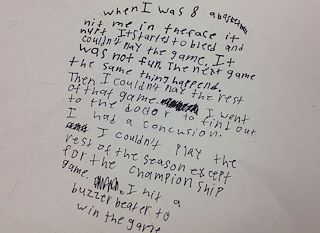 when I was 8 a basketball
hit me in the face it
hurt It started to bleed and
couldn't play the game, It
was not fun. The next game
the same thing happend.
Then I couldn't play the rest
of that game. I went
to the doctor to find out
I had a concusion.
I couldn't play the
rest of the season except
for the championship
game. I hit a
buzzer beater to
win the game